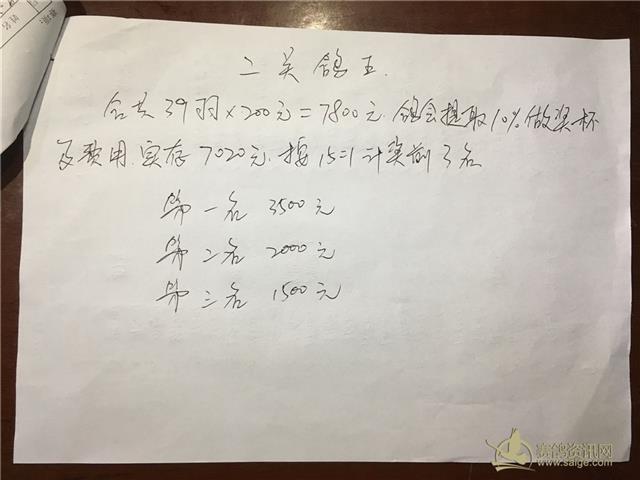 二关鸽王
合共39羽×200元=7800元.鸽会提取10%做奖杯
及费用.实存7020元.按15:1计奖前3名
第一名 3500元
第二名 2000元
第三名 1500元
赛鸽资讯网
www.saige.com